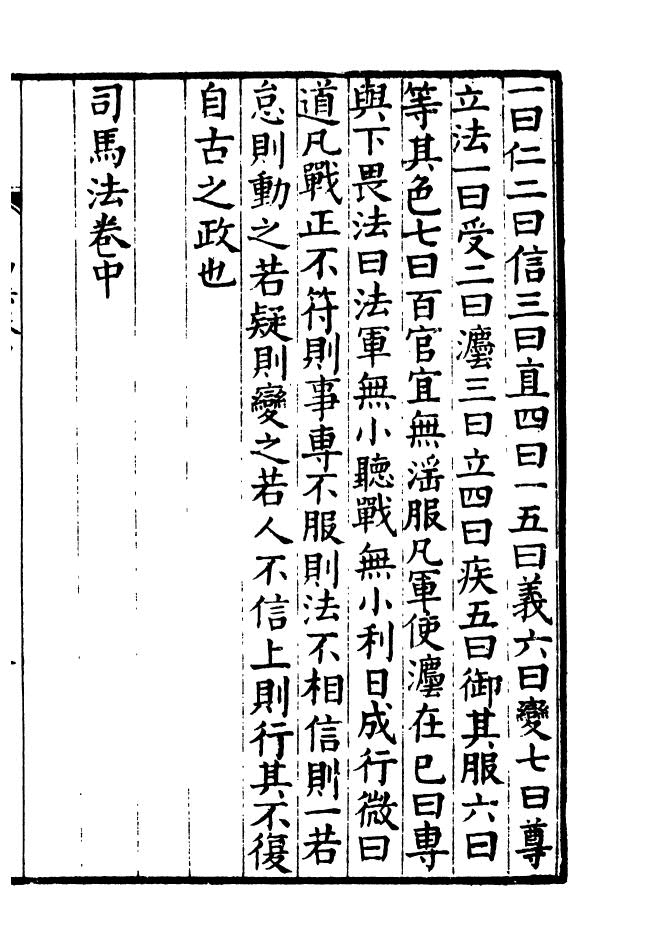 一曰仁二曰信三曰直四曰一五曰義六曰變七曰尊
立法一曰受二曰灋三曰立四曰疾五曰御其服六曰
等其色七曰百官宜無淫服凡軍使灋在已曰專
與下畏法曰法軍無小聽戰無小利日成行微曰
道凡戰正不符則事專不服則法不相信則一若
怠則動之若疑則變之若人不信上則行其不復
自古之政也
司馬法卷中